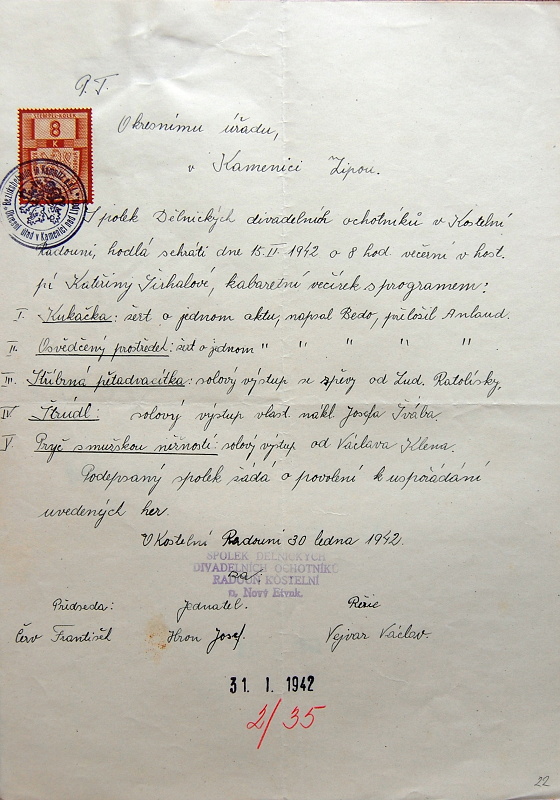 P. T.
STEMPEL-KOLEK
8
K
Okresnímu úřadu,
v Kamenici Lipou.
Spolek Dělnických divadelních ochotníků v Kostelní
Radouni, hodlá sehráti dne 15. II. 1942 o 8 hod. večerní v host.
pí Kateřiny Sirhalové, kabaretní večírek s programem:
I. Kukačka: žert o jednom aktu, napsal Bedo, přeložil Anlaud.
II. Osvědčený prostředek: žert o jednom " " " " "
III. Stříbrná pětadvacítka: solový výstup se zpěvy od Lud. Ratolísky.
IV Štrúdl: solový výstup vlast. nákl. Josefa Švába.
V Pryč s mužskou něžností: solový výstup od Václava Klena.
Podepsaný spolek žádá o povolení k uspořádání
uvedených her.
V Kostelní Radouni 30 ledna 1942.
SPOLEK DĚLNICKÝCH
DIVADELNÍCH OCHOTNÍKŮ
za:
RADOUŇ KOSTELNÍ
p. Nový Etynk.
Předseda: Jednatel. Režie
Červ František Hron Josef. Vejvar Václav.
31. I. 1942
2/35
22